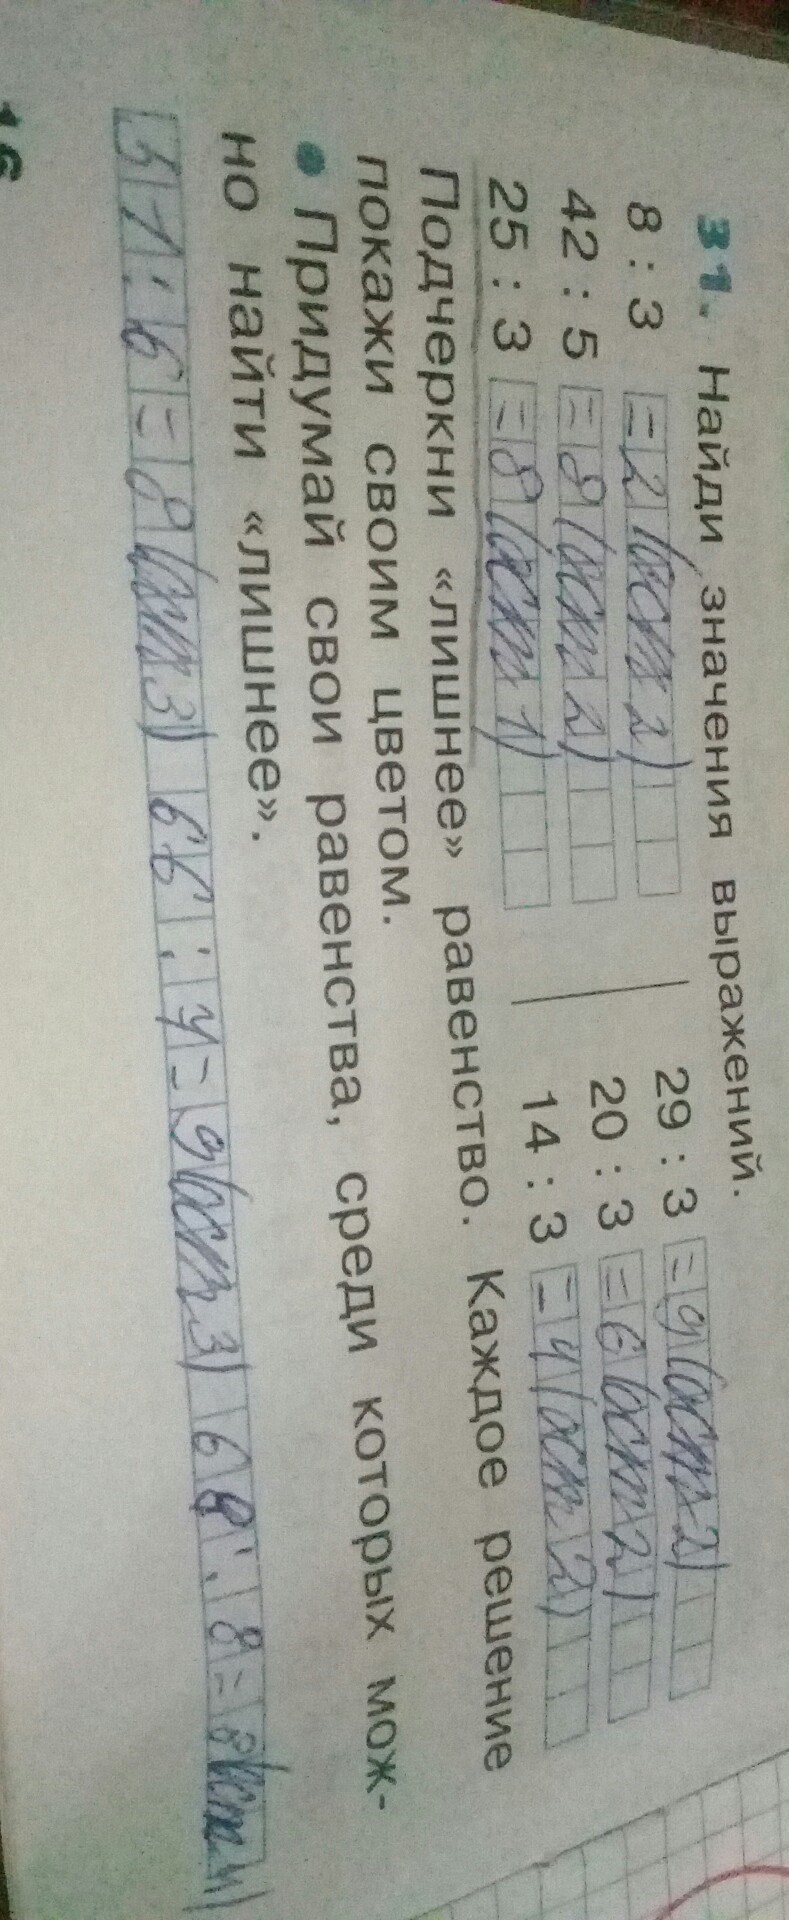 31. Найди значения выражений.
8 : 3 = 2 (ост 2) 29 : 3 = 9 (ост 2)
42 : 5 = 8 (ост 2) 20 : 3 = 6 (ост 2)
25 : 3 = 8 (ост 1) 14 : 3 = 4 (ост 2)
Подчеркни «лишнее» равенство. Каждое решение
покажи своим цветом.
• Придумай свои равенства, среди которых мож-
но найти «лишнее».
51 : 6 = 8 (ост 3) 66 : 7 = 9 (ост 3) 68 : 8 = 8 (ост 4)
16